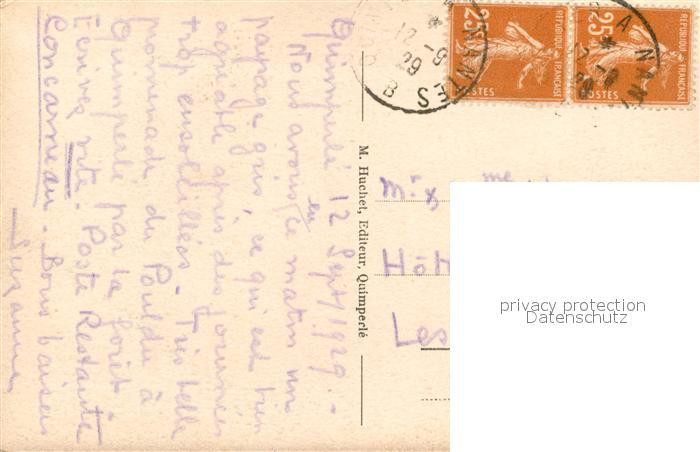 Quimperlé 12 Sept/1929.-
Nous avons eu ce matin un
paysage gris, ce qui est bien
agréable après des journées
trop ensoleillées - Très belle
promenade du Pouldu à
Quimperlé par la forêt -
Ecrivez vite - Poste Restante
Concarneau - Bons baisers
Suzanne
M. Huchet, Editeur, Quimperlé
me
Hôt
NANTES
12 - 9
29
B
25
REPUBLIQUE FRANÇAISE
POSTES
25
REPUBLIQUE FRANÇAISE
POSTES
privacy protection
Datenschutz